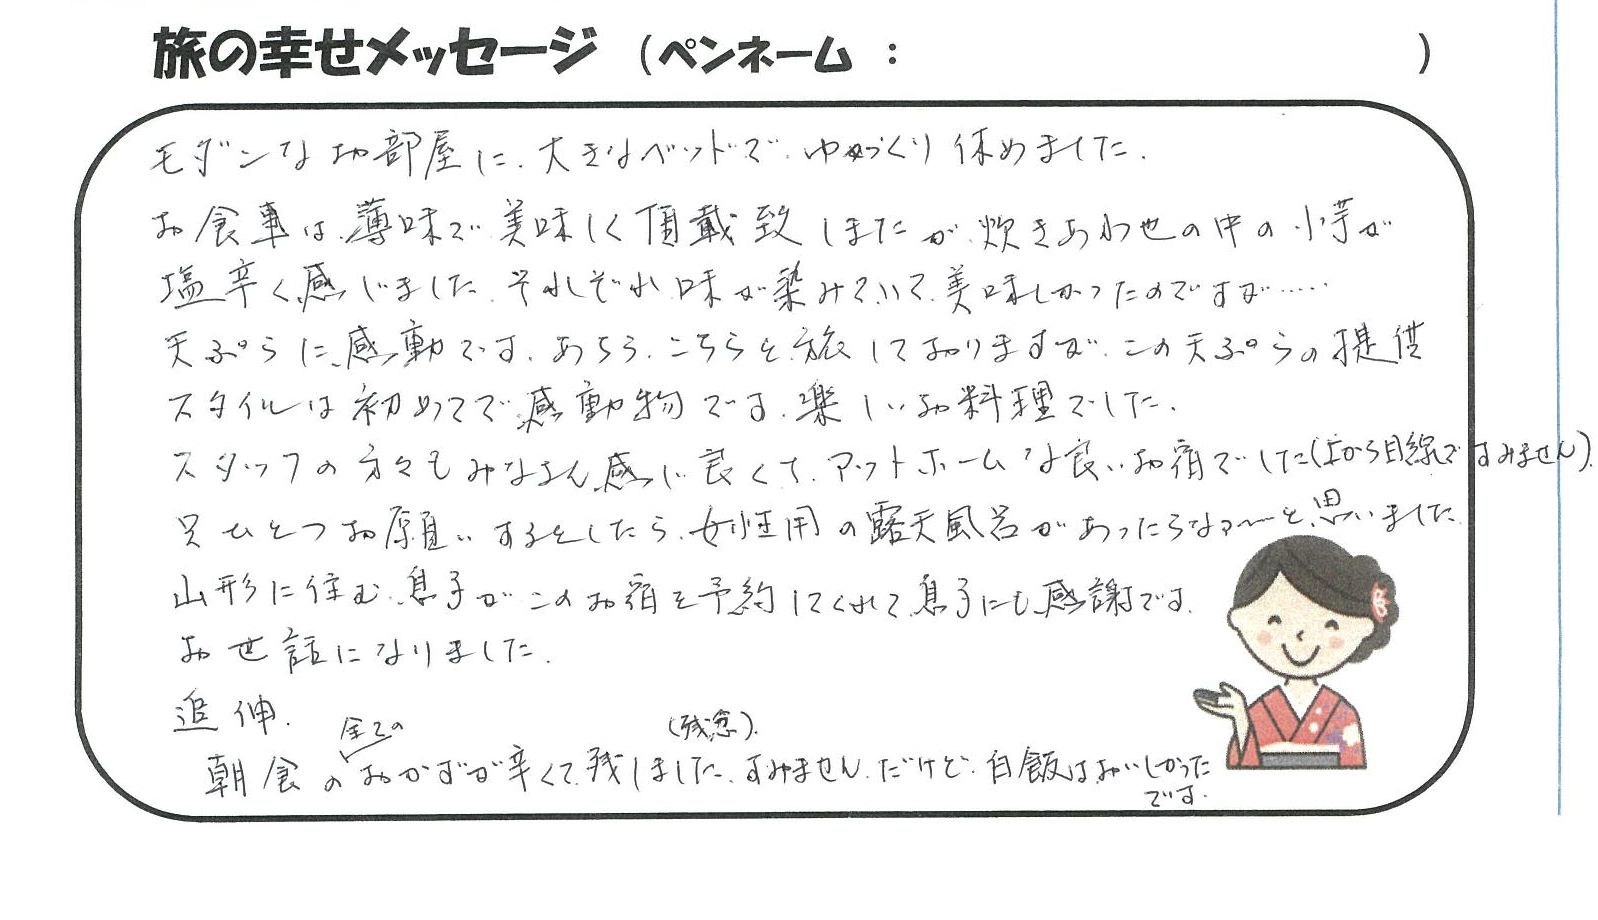 旅の幸せメッセージ （ペンネーム ： ）
モダンなお部屋に、大きなベッドで、ゆっくり休めました。
お食事は、薄味で美味しく頂戴致しまたが、炊きあわせの中の小芋が
塩辛く感じました。それぞれ味が染みていて、美味しかったのですが……
天ぷらに感動です。あちら、こちらと旅しておりますが、この天ぷらの提供
スタイルは初めてで感動物です。楽しいお料理でした。
スタッフの方々もみなさん感じ良くて、アットホームな良いお宿でした(上から目線ですみません)
只ひとつお願いするとしたら、女性用の露天風呂があったらなァ〜と思いました。
山形に住む息子がこのお宿を予約してくれて、息子にも感謝です。
お世話になりました。
追伸.
全ての (残念).
朝食のおかずが辛くて、残しました。すみません。だけど、白飯はおいしかった
です。